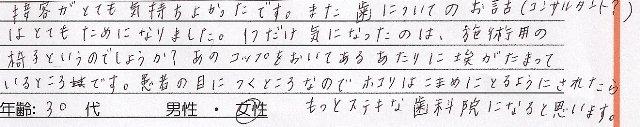 接客がとても気持ちよかったです。また歯についてのお話(コンサルタント?)
はとてもためになりました。1つだけ気になったのは、施術用の
椅子というのでしょうか?あのコップをおいてあるあたりに埃がたまって
いるところです。患者の目につくところなのでホコリはこまめにとるようにされたら
年齢:30代 男性・女性 もっとステキな歯科院になると思います。